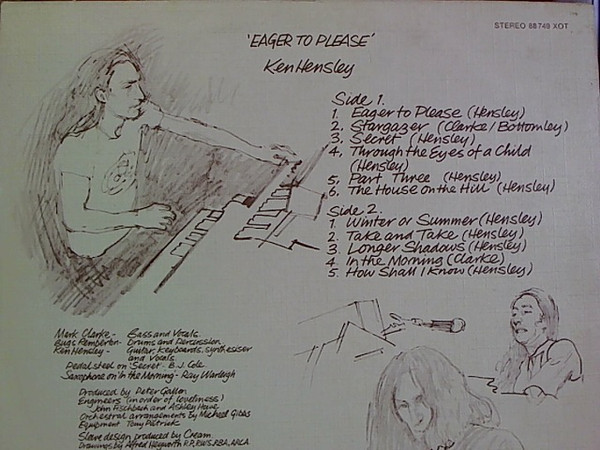 STEREO 88 749 XOT
'EAGER TO PLEASE'
Ken Hensley
Side 1.
1. Eager to Please (Hensley)
2. Stargazer (Clarke/Bottomley)
3. Secret (Hensley)
4. Through the Eyes of a Child
(Hensley)
5. Part Three (Hensley)
6. The House on the Hill (Hensley)
Side 2.
1. Winter or Summer (Hensley)
2. Take and Take (Hensley)
3. Longer Shadows (Hensley)
4. In the Morning (Clarke)
5. How Shall I Know (Hensley)
Mark Clarke - Bass and Vocals.
Bugs Pemberton - Drums and Percussion
Ken Hensley - Guitar, Keyboards, synthesiser
and Vocals
Pedal steel on Secret - B.J. Cole
Saxophone on 'In the Morning - Ray Warleigh
Produced by Peter Gallen
Engineers (in order of loveliness)
John Fischbach and Ashley Howe
Orchestral arrangements by Michael Gibbs
Equipment Tony
Sleeve design produced by Cream
Drawings by Alfred